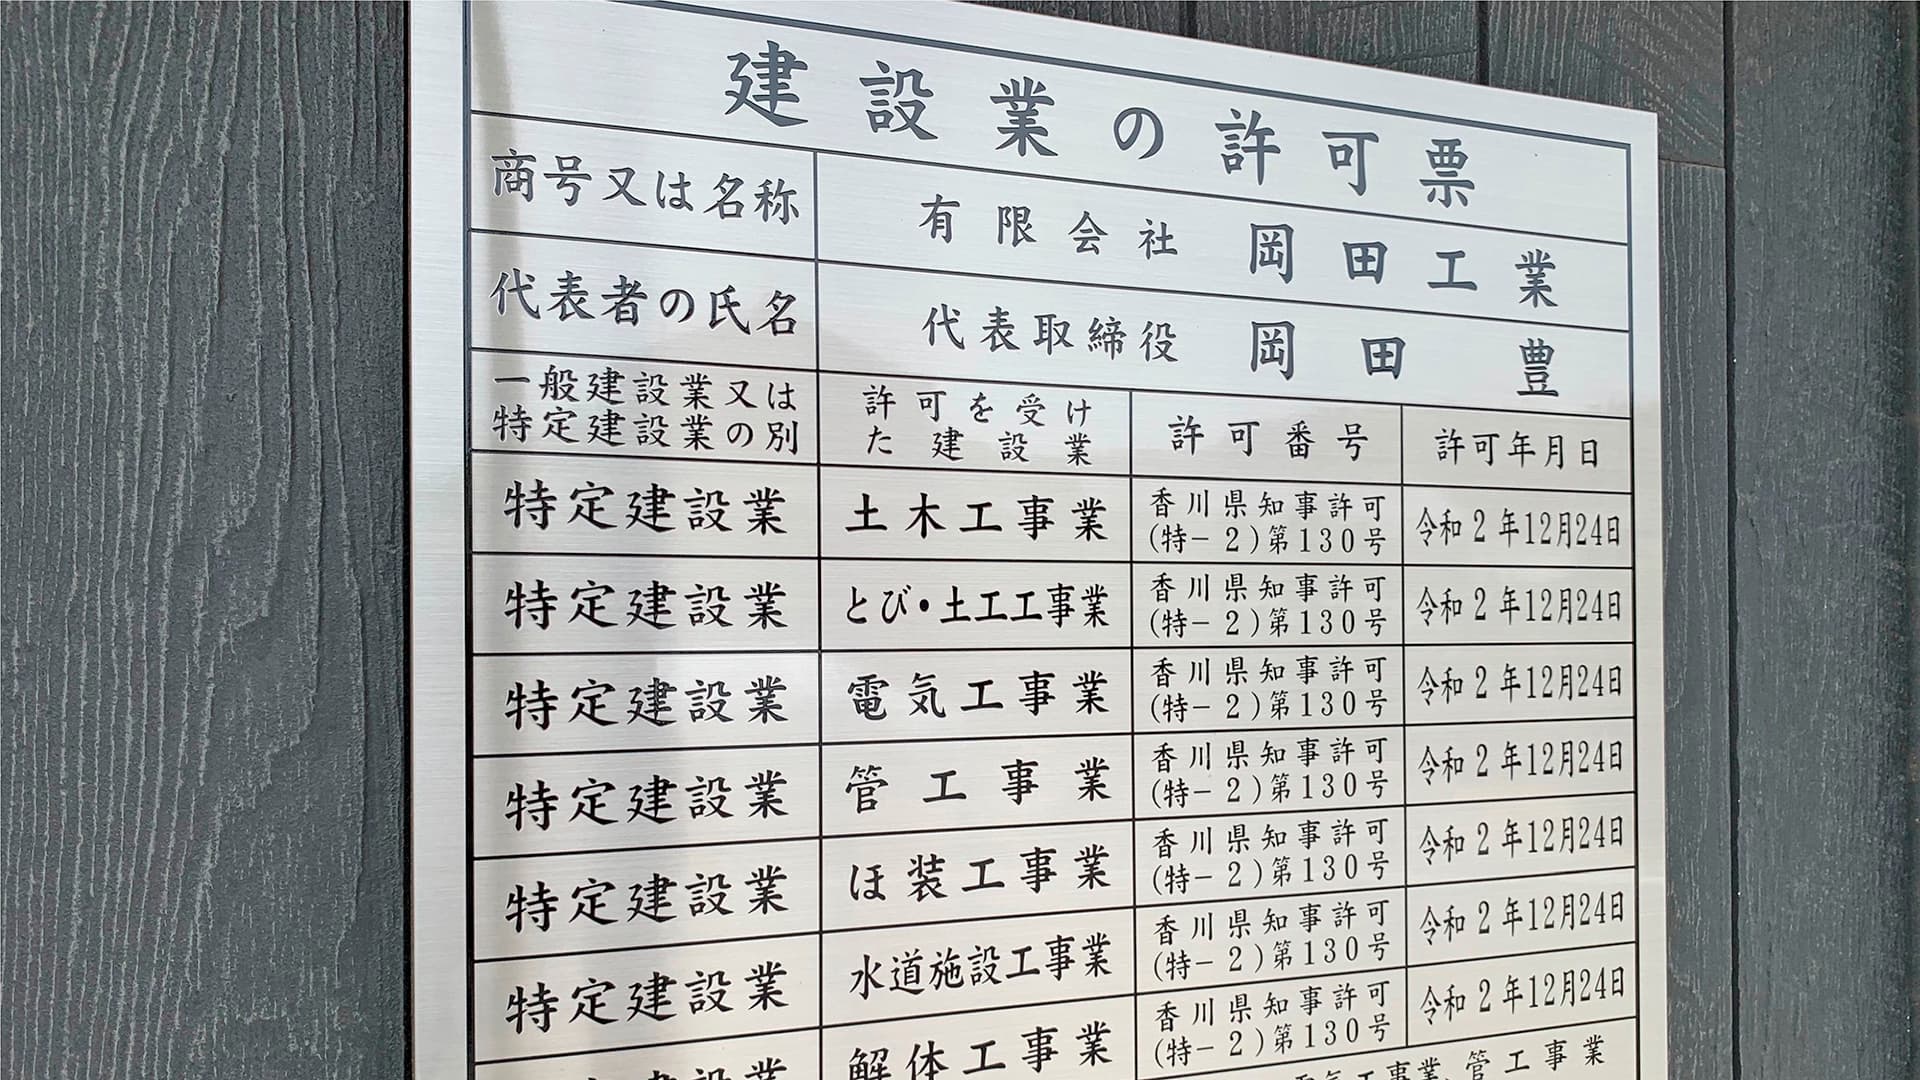 建設業の許可票
商号又は名称 有限会社 岡田工業
代表者の氏名 代表取締役 岡田 豊
一般建設業又は
特定建設業の別
許可を受け
た建設業
許可番号
許可年月日
特定建設業 土木工事業
香川県知事許可
(特-2)第130号
令和2年12月24日
特定建設業 とび・土工工事業
香川県知事許可
(特-2)第130号
令和2年12月24日
特定建設業 電気工事業
香川県知事許可
(特-2)第130号
令和2年12月24日
特定建設業 管工事業
香川県知事許可
(特-2)第130号
令和2年12月24日
特定建設業 ほ装工事業
香川県知事許可
(特-2)第130号
令和2年12月24日
特定建設業 水道施設工事業
香川県知事許可
(特-2)第130号
令和2年12月24日
建設業 解体工事業
香川県知事許可
(特-2)第130号
令和2年12月24日
電気工事業、管工事業